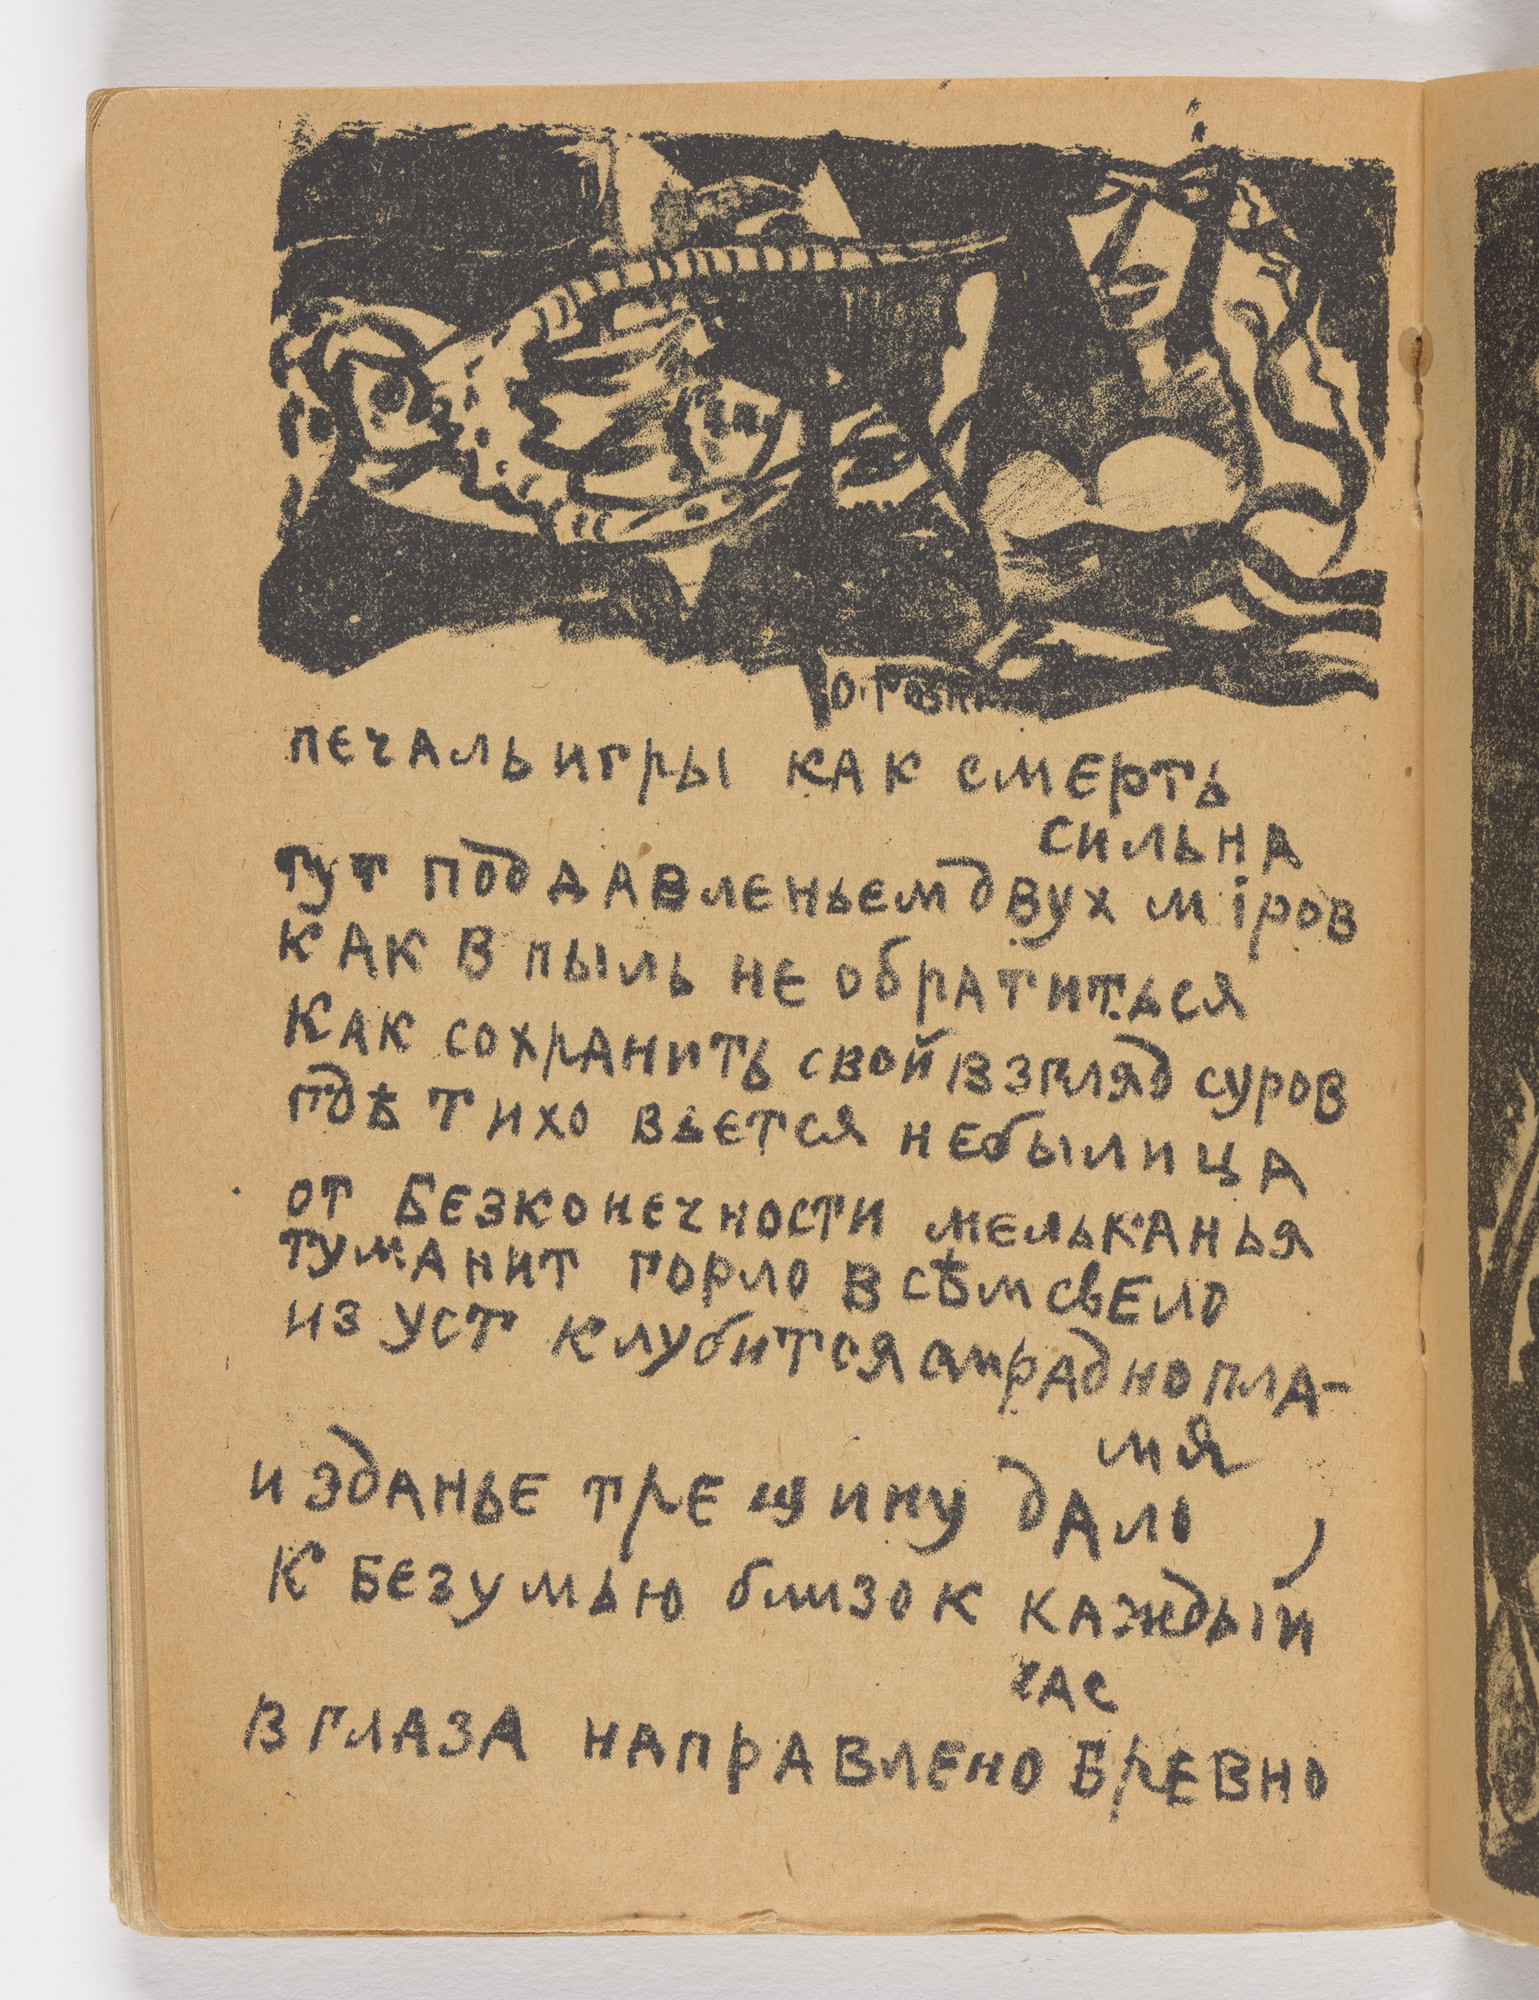 О. Розан
печаль игры как смерть
сильна
тут под давленьем двух міров
как в пыль не обратиться
как сохранить свой взгляд суров
гдѣ тихо вьется небылица
от безконечности мельканья
туманит горло всѣм свело
из уст клубится смрадно пла-
мя
и зданье трещину дало
к безумью близок каждый
час
в глаза направлено бревно